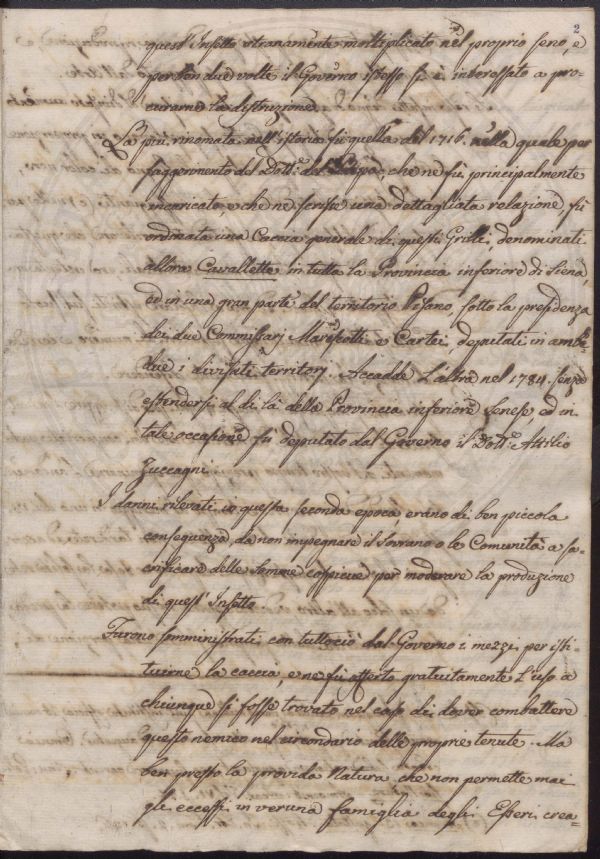 2
quest'Insetto stranamente moltiplicato nel proprio seno, e
per ben due volte il Governo stesso si è interessato a pro-
curarne la distruzione.
La più rinomata nell'istoria fù quella del 1716. nella quale per
suggerimento del Dott.e del Papa, che ne fù principalmente
incaricato, e che ne scrisse una dettagliata relazione, fù
ordinata una Caccia generale di questi Grilli, denominati
allora Cavallette in tutta la Provincia inferiore di Siena,
ed in una gran parte del territorio Pisano, sotto la presidenza
dei due Commissarj Marescotti e Cartei, deputati in ambe-
due i divisati territorj. Accadde l'altra nel 1784. senza
estendersi al di là della Provincia inferiore Senese, ed in
tale occasione fù deputato dal Governo il Dott.e Attilio
Zuccagni.
I danni rilevati in questa seconda epoca, erano di ben piccola
conseguenza, da non impegnare il Sovrano o le Comunità a sa-
crificare delle somme cospicue per moderare la produzione
di quest'Insetto.
Furono somministrati con tuttociò dal Governo i mezzi per isti-
tuirne la caccia, e ne fù offerto gratuitamente l'uso a
chiunque si fosse trovato nel caso di dover combattere
questo nemico nel circondario delle proprie tenute. Ma
ben presto la provida Natura che non permette mai
gli eccessi in veruna famiglia degli Esseri crea-